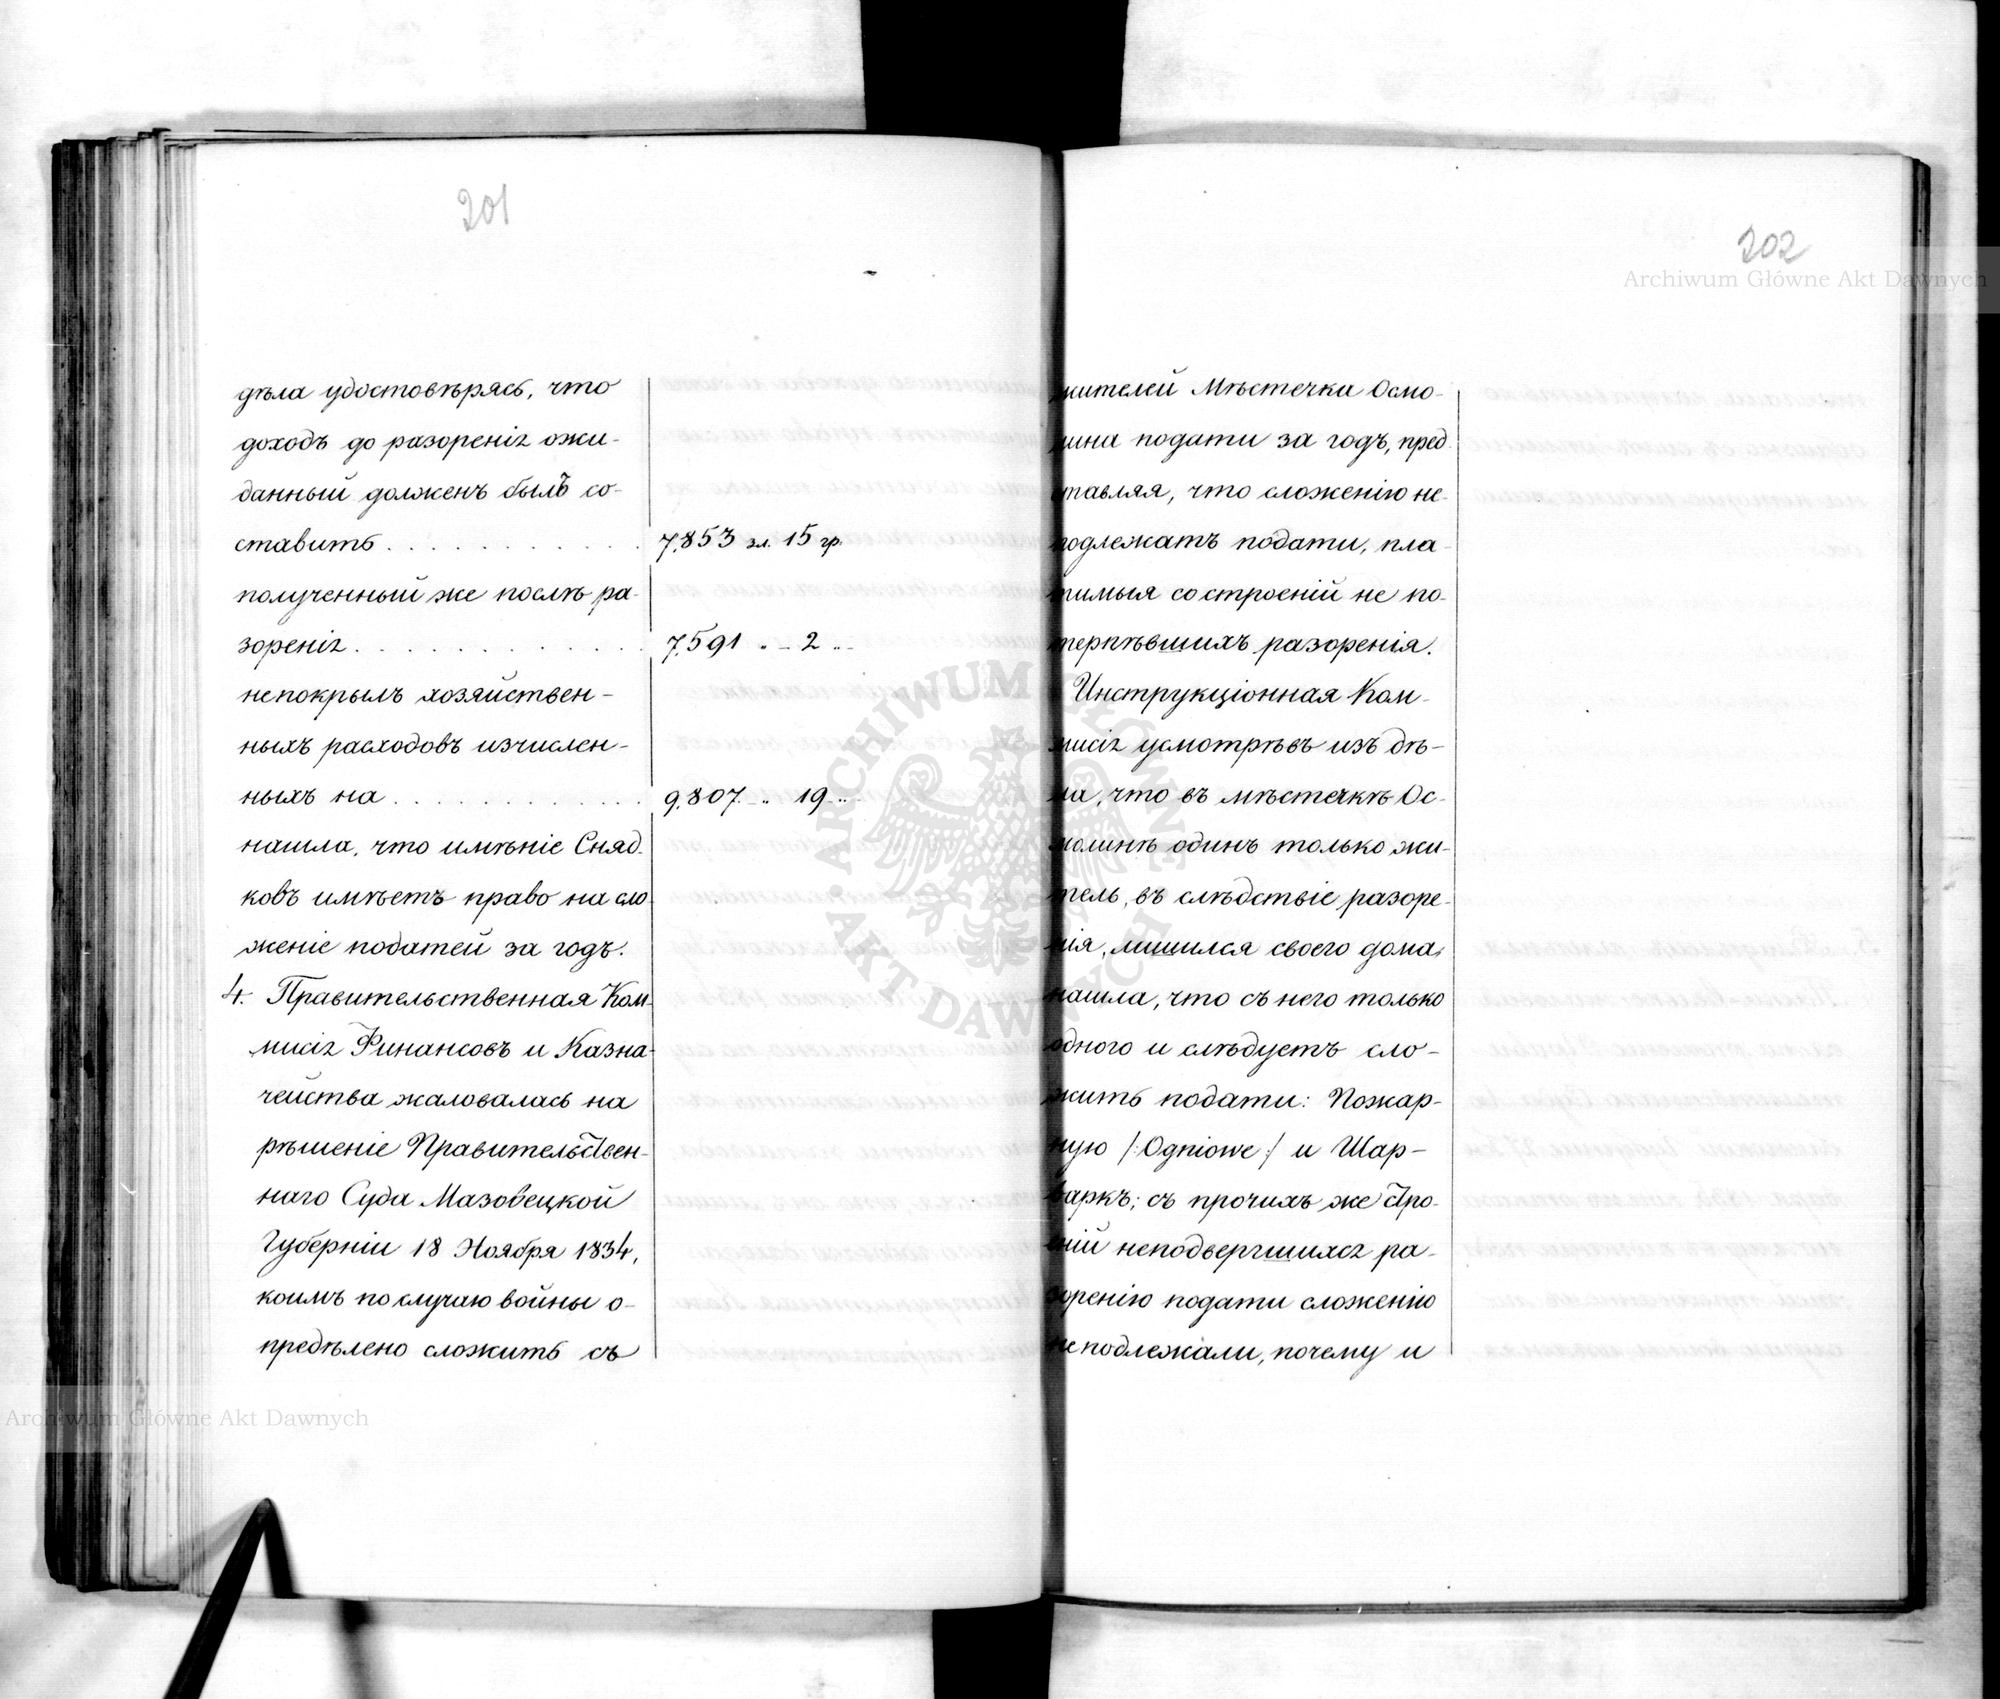 201
дѣла удостовѣрясь, что
доходъ до разоренія ожи-
данный долженъ былъ со-
ставить . . . . . . . . . . . 7,853 зл. 15 гр.
полученный же послѣ ра-
зоренія . . . . . . . . . . . . 7,591 „ – 2 „ –
непокрылъ хозяйствен-
ныхъ расходовъ изчислен-
ныхъ на . . . . . . . . . . . 9,807. „ 19 „
нашла, что имѣніе Сняд-
ковъ имѣетъ право на сло-
женіе податей за годъ.
4. Правительственная Ком-
мисія Финансовъ и Казна-
чейства жаловалась на
рѣшеніе Правительствен-
наго Суда Мазовецкой
Губерніи 18 Ноября 1834,
коимъ по случаю войны о-
предѣлено сложить съ
202
жителей Мѣстечка Осмо-
лина подати за годъ, пред-
ставляя, что сложенію не-
подлежатъ подати, пла-
тимыя со строеній не по-
терпѣвшихъ разоренія.
Инструкціонная Ком-
мисія усмотрѣвъ изъ дѣ-
ла, что въ мѣстечкѣ Ос-
молинѣ одинъ только жи-
тель, въ слѣдствіе разоре-
нія, лишился своего дома,
нашла, что съ него только
одного и слѣдуетъ сло-
жить подати: Пожар-
ную /:Ogniowe:/ и Шар-
варкъ; съ прочихъ же стро-
еній неподвергшихся ра-
зоренію подати сложенію
не подлежали, почему и
Archiwum Główne Akt Dawnych
Archiwum Główne Akt Dawnych
ARCHIWUM GŁÓWNE AKT DAWNYCH